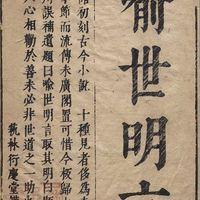 喻世明
初刻古今小說 十種見者侈為
節而流傳未廣閣置可惜今板歸
誤補遺題曰喻世明言取其明白
人心相勸於善未必非世道之一助
藝林衍慶堂